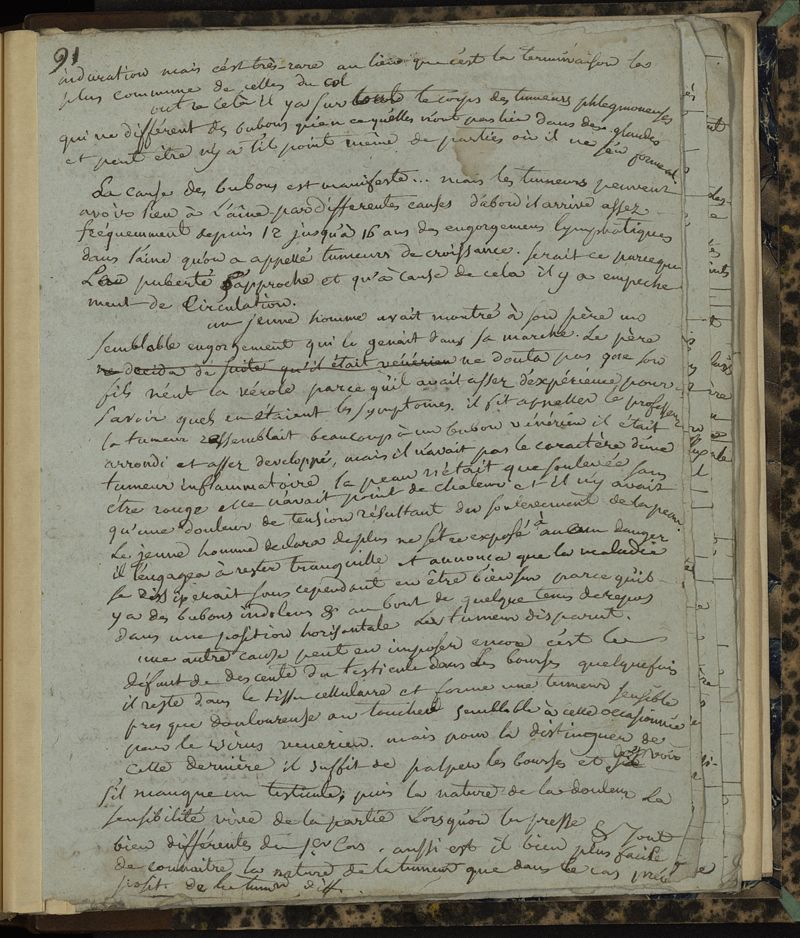 91
induration mais c'est très-rare au lieu que c'est la terminaison la
plus commune de celles du col
outre cela il y a sur toute le corps des tumeurs phlegmoneuses
qui ne different des bubons qu'en ce qu'elles n'ont pas lieu dans des glandes
et peut être n'y a t'il point même de parties où il ne s'en forment.
La cause des bubons est manifeste... mais les tumeurs peuvent
avoir lieu à l'aîne par differentes causes d'abord il arrive assez
fréquemment depuis 12 jusqu'à 16 ans des engorgemens lymphatiques
dans l'aine qu'on a appellé tumeurs de croissance. serait ce parceque
La puberté s'approche et qu'à cause de cela il y a empeche
ment de Circulation.
un jeune homme avait montré à son père un
semblable engorgement qui le genait dans sa marche. Le père
ne decida de suite qu'il était vénérien ne douta pas que son
fils n'eut la vérole parce qu'il avait assez d'expérience pour
savoir quels en étaient les symptomes. il fit appeller le professeur
la tumeur ressemblait beaucoup à un bubon vénérien il était
arrondi et assez developpé, mais il n'avait pas le caractère d'une
tumeur inflammatoire la peau n'était que soulevée sans
être rouge elle n'avait point de chaleur et il n'y avait
qu'une douleur de tension résultant du soulevement de la peau.
Le jeune homme declara de plus ne s'etre exposé à aucun danger
il l'engagea à rester tranquille et annonca que la maladie
se dissiperait sans cependant en être bien sur parce qu'il
y a des bubons indolens & au bout de quelque tems de repos
dans une position horisontale la tumeur disparut.
une autre cause peut en imposer encore c'est le
défaut de descente du testicule dans les bourses quelquefois
il reste dans le tissu cellulaire et forme une tumeur sensible
presque douloureuse au toucher semblable à celle occasionnée
par le virus venerien. mais pour la distinguer de
cette dernière il suffit de palper les bourses et voir
s'il manque un testicule; puis la nature de la douleur La
sensibilité vive de la partie Lorsqu'on la presse & sont
bien différentes du 1er Cas. aussi est il bien plus facile
de connaitre la nature de la tumeur que dans le cas
de la tumeur